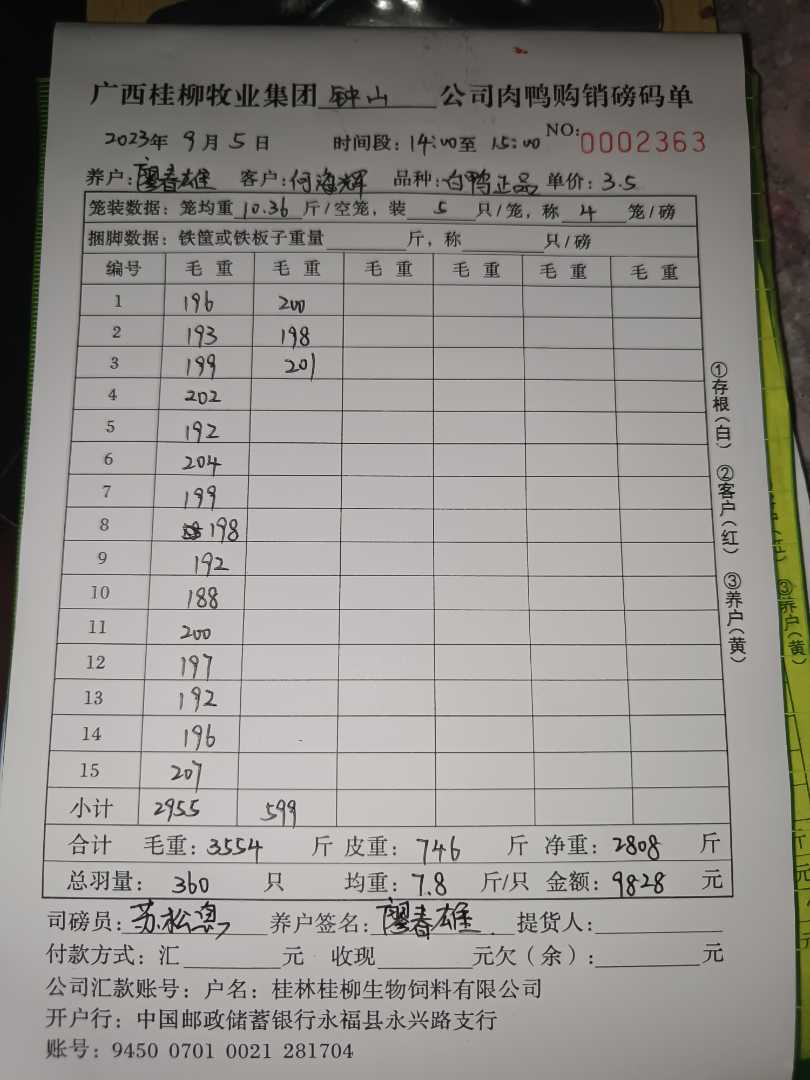 广西桂柳牧业集团 钟山 公司肉鸭购销磅码单
2023年 9月 5日 时间段: 14:00至 15:00 NO: 0002363
养户: 廖春雄 客户: 何海辉 品种: 白鸭正品 单价: 3.5
笼装数据: 笼均重 10.36 斤/空笼, 装 5 只/笼, 称 4 笼/磅
捆脚数据: 铁筐或铁板子重量 斤, 称 只/磅
编号 毛重 毛重 毛重 毛重 毛重 毛重
1 196 200
2 193 198
3 199 201
4 202
5 192
6 204
7 199
8 198
9 192
10 188
11 200
12 197
13 192
14 196
15 207
小计 2955 599
合计 毛重: 3554 斤 皮重: 746 斤 净重: 2808 斤
总羽量: 360 只 均重: 7.8 斤/只 金额: 9828 元
司磅员: 苏松 养户签名: 廖春雄 提货人:
付款方式: 汇 元 收现 元欠(余): 元
公司汇款账号: 户名: 桂林桂柳生物饲料有限公司
开户行: 中国邮政储蓄银行永福县永兴路支行
账号: 9450 0701 0021 281704
①存根(白) ②客户(红) ③养户(黄)
③养户(黄)